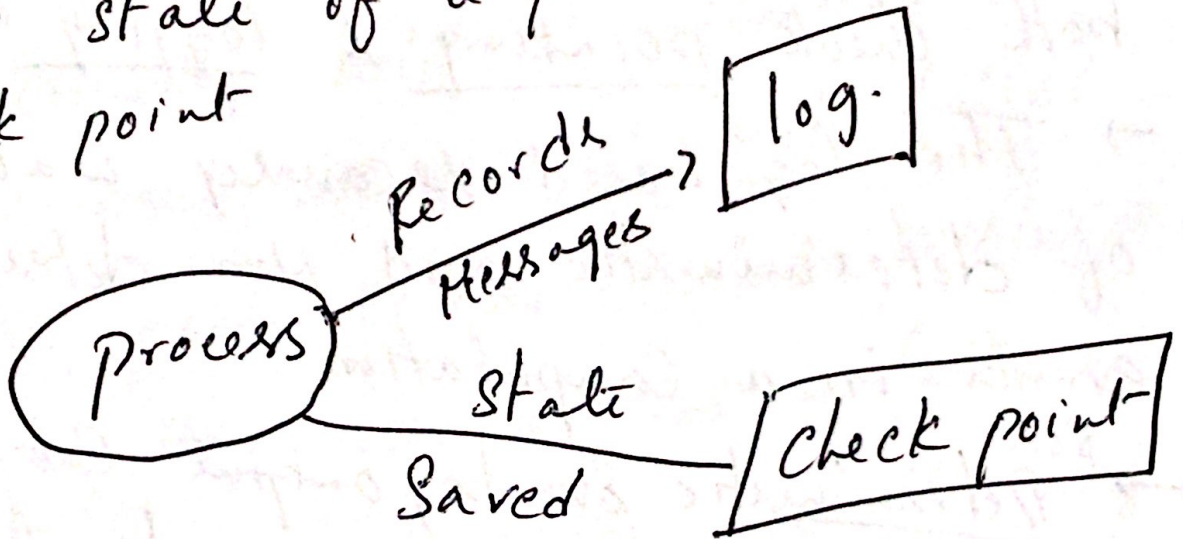 state of a
k point
Records
Messages
log.
process
State
Saved
check point